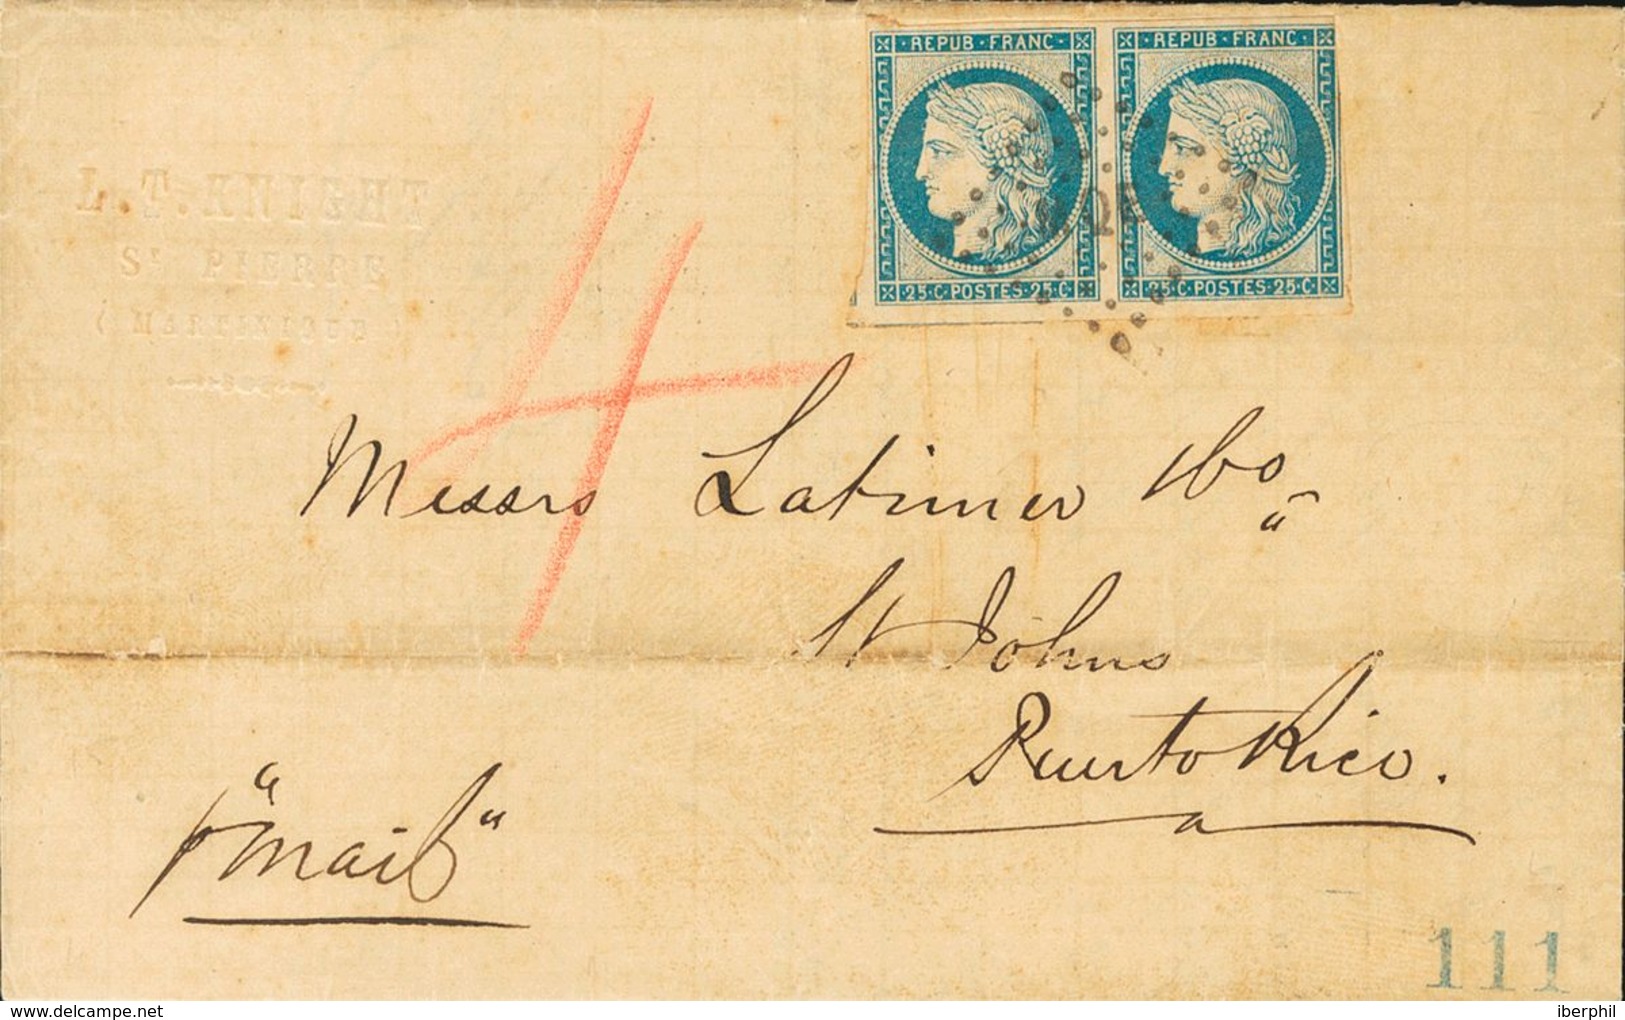 REPUB · FRANC · REPUB · FRANC ·
25·C·POSTES·25·C· 25·C·POSTES·25·C·
L. T. KNIGHT
St PIERRE
( MARTINIQUE )
4
Messrs Latimer & Co
St Johns
Puerto Rico.
p "mail"
111
iberphil